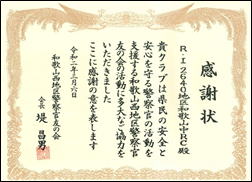 感謝状
R・I・2640地区和歌山中RC殿
貴クラブは県民の安全と
安心を守る警察官の活動を
支援する和歌山西地区警察官
友の会の活動に多大なご協力を
いただきました
ここに感謝の意を表します
令和二年三月六日
和歌山西地区警察官友の会
会長 堤 昌男